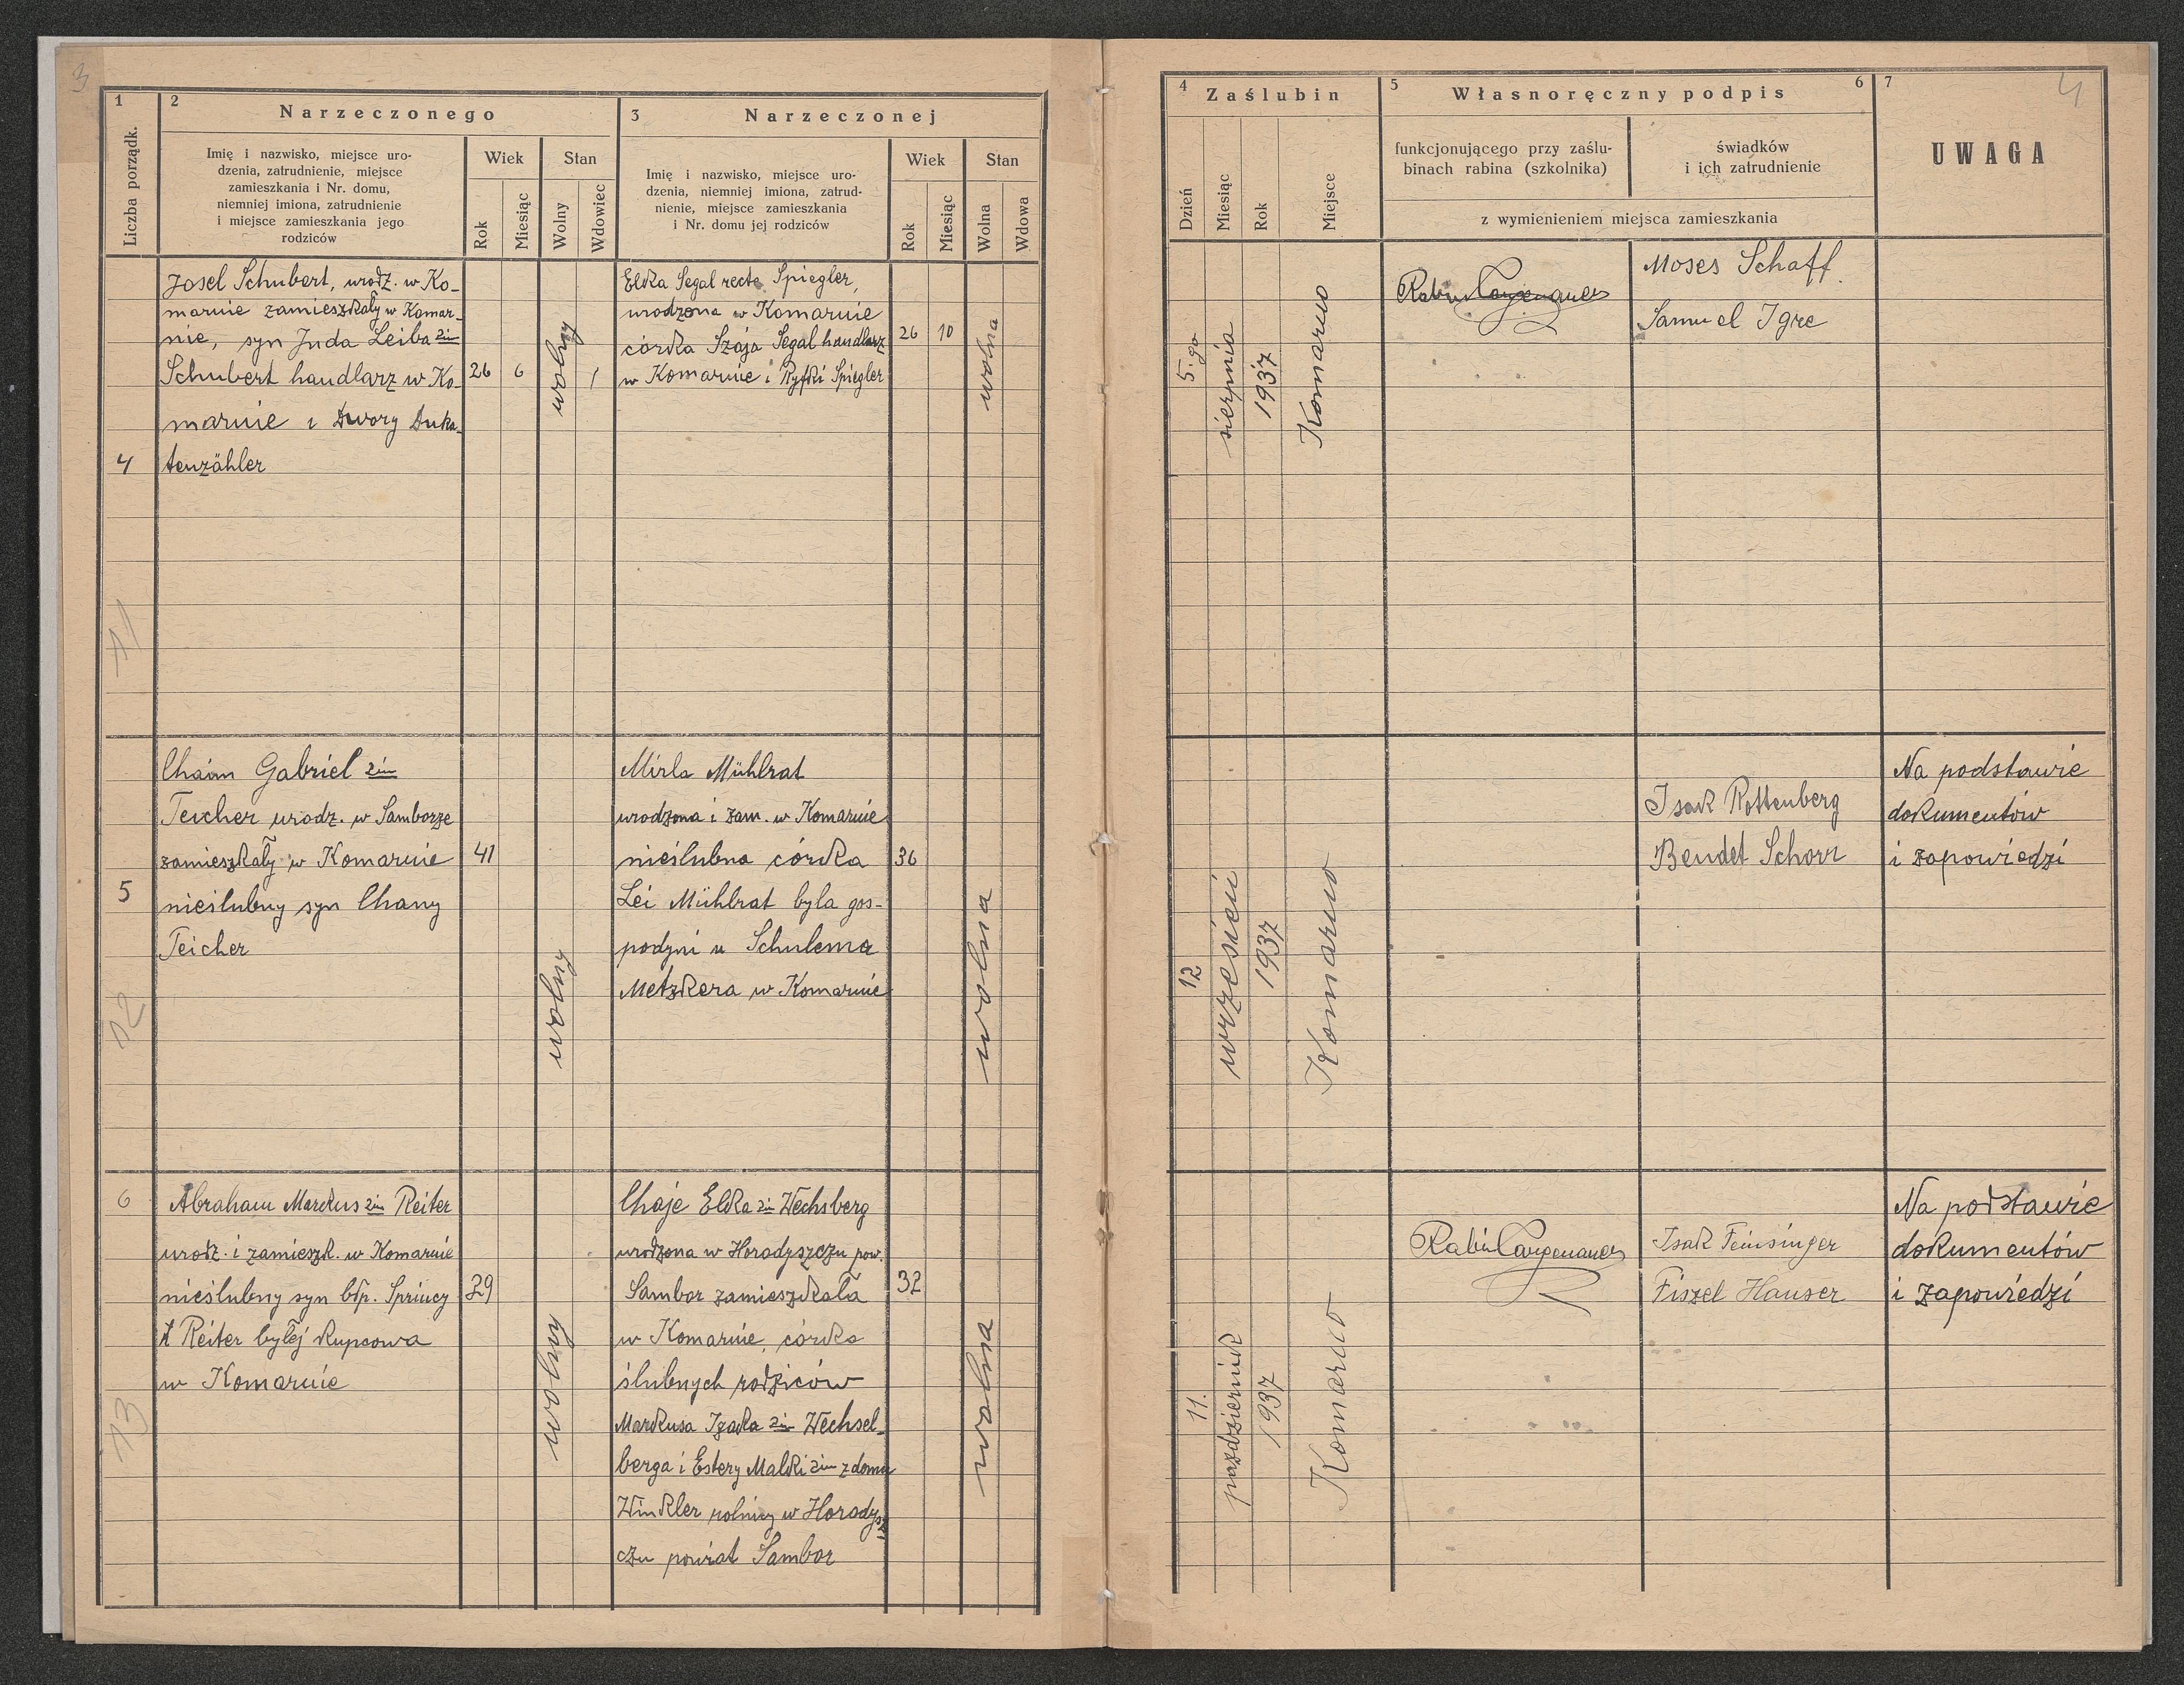 3
1
Liczba porządk.
2
Narzeczonego
Imię i nazwisko, miejsce uro-
dzenia, zatrudnienie, miejsce
zamieszkania i Nr. domu,
niemniej imiona, zatrudnienie
i miejsce zamieszkania jego
rodziców
Wiek
Rok
Miesiąc
Stan
Wolny
Wdowiec
3
Narzeczonej
Imię i nazwisko, miejsce uro-
dzenia, niemniej imiona, zatrud-
nienie, miejsce zamieszkania
i Nr. domu jej rodziców
Wiek
Rok
Miesiąc
Stan
Wolna
Wdowa
4
Josel Schubert, urodz. w Ko-
marnie zamieszkały w Komar-
nie, syn Juda Leiba 2im
Schubert handlarz w Ko-
marnie i Dwory Duka-
tenzähler
26
6
wolny
Elka Segal recte Spiegler,
urodzona w Komarnie
córka Szaja Segal handlarz
w Komarnie i Ryfki Spiegler
26
10
wolna
11
5
Chaim Gabriel 2im
Teicher urodz. w Samborze
zamieszkały w Komarnie
nieślubny syn Chany
Teicher
41
wolny
Mirla Mühlrat
urodzona i zam. w Komarnie
nieślubna córka
Lei Mühlrat byla gos-
podyni u Schulema
Metzkera w Komarnie
36
wolna
12
6
Abraham Markus 2im Reiter
urodz. i zamieszk. w Komarnie
nieślubny syn błp. Sprincy
Reiter byłej kupcowa
w Komarnie
29
wolny
Chaje Elka 2im Wechsberg
urodzona w Horodyszczu pow.
Sambor zamieszkała
w Komarnie, córka
ślubnych rodziców
Markusa Izaka 2im Wechsel-
berga i Estery Malki 2im z domu
Winkler rolnicy w Horodysz-
czu powiat Sambor
32
wolna
13
4
4
Zaślubin
Dzień
Miesiąc
Rok
Miejsce
5
Własnoręczny podpis
6
funkcjonującego przy zaślu-
binach rabina (szkolnika)
świadków
i ich zatrudnienie
z wymienieniem miejsca zamieszkania
7
UWAGA
5.go
sierpnia
1937
Komarno
Rabin
Moses Schaff
Samuel Igre
12
wrzesień
1937
Komarno
Isak Rottenberg
Bendet Schorr
Na podstawie
dokumentów
i zapowiedzi
11.
październik
1937
Komarno
Rabin
Isak Feinsinger
Fiszel Hauser
Na podstawie
dokumentów
i zapowiedzi